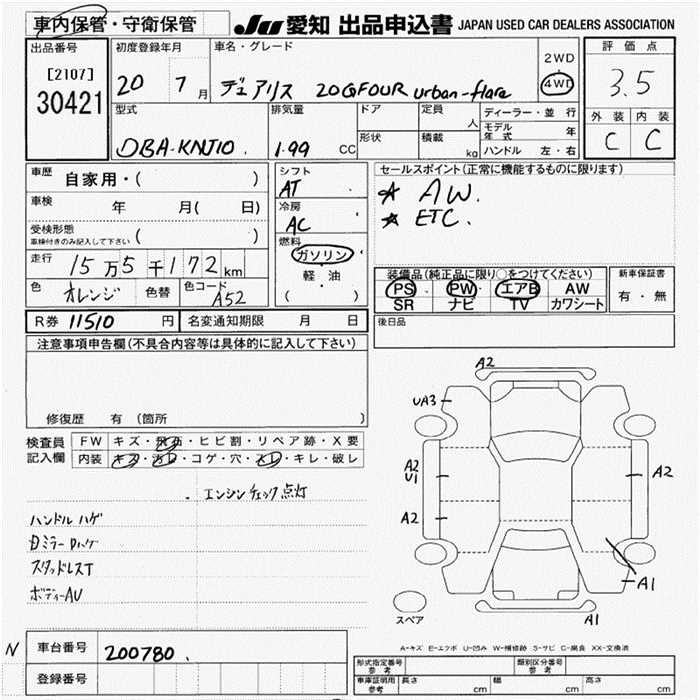 車内保管・守衛保管 JU 愛知 出品申込書 JAPAN USED CAR DEALERS ASSOCIATION
出品番号 初度登録年月 車名・グレード 2WD 評価点
[2107] 20 7月 デュアリス 20GFOUR urban-flare 4WD 3.5
30421
型式 排気量 ドア 定員 人 ディーラー・並行 外装 内装
DBA-KNJ10. 1.99 CC 形状 積載 kg モデル年式 年 C C
ハンドル 左・右
車歴 自家用・( )
車検 年 月( 日)
受検形態 車検付きのみ記入して下さい ( )
走行 15万5千172km
色 オレンジ 色替 色コード A52
シフト AT
冷房 AC
燃料 ガソリン
軽・油
( )
セールスポイント(正常に機能するものに限ります)
★ AW.
★ ETC.
装備品(純正品に限り○をつけてください) 新車保証書
PS PW エアB AW 有・無
SR ナビ TV カワシート
R券 11510 円 名変通知期限 月 日 後日品
注意事項申告欄(不具合内容等は具体的に記入して下さい)
修復歴 有(箇所 )
検査員 FW キズ・飛石・ヒビ割・リペア跡・X要
記入欄 内装 キズ・汚レ・コゲ・穴・スレ・キレ・破レ
. エンジンチェック点灯
ハンドルハゲ
スタッドレスT
ボディーAU
A2
UA3
A2
U1
A2
A2
A1
A1
スペア
A-キズ E-エクボ U-凹み W-補修跡 S-サビ C-腐食 XX-交換済
N 車台番号 200780.
登録番号
形式指定番号 参考 類別区分番号 参考
車庫証明用 参考 長さ cm 幅 cm 高さ cm